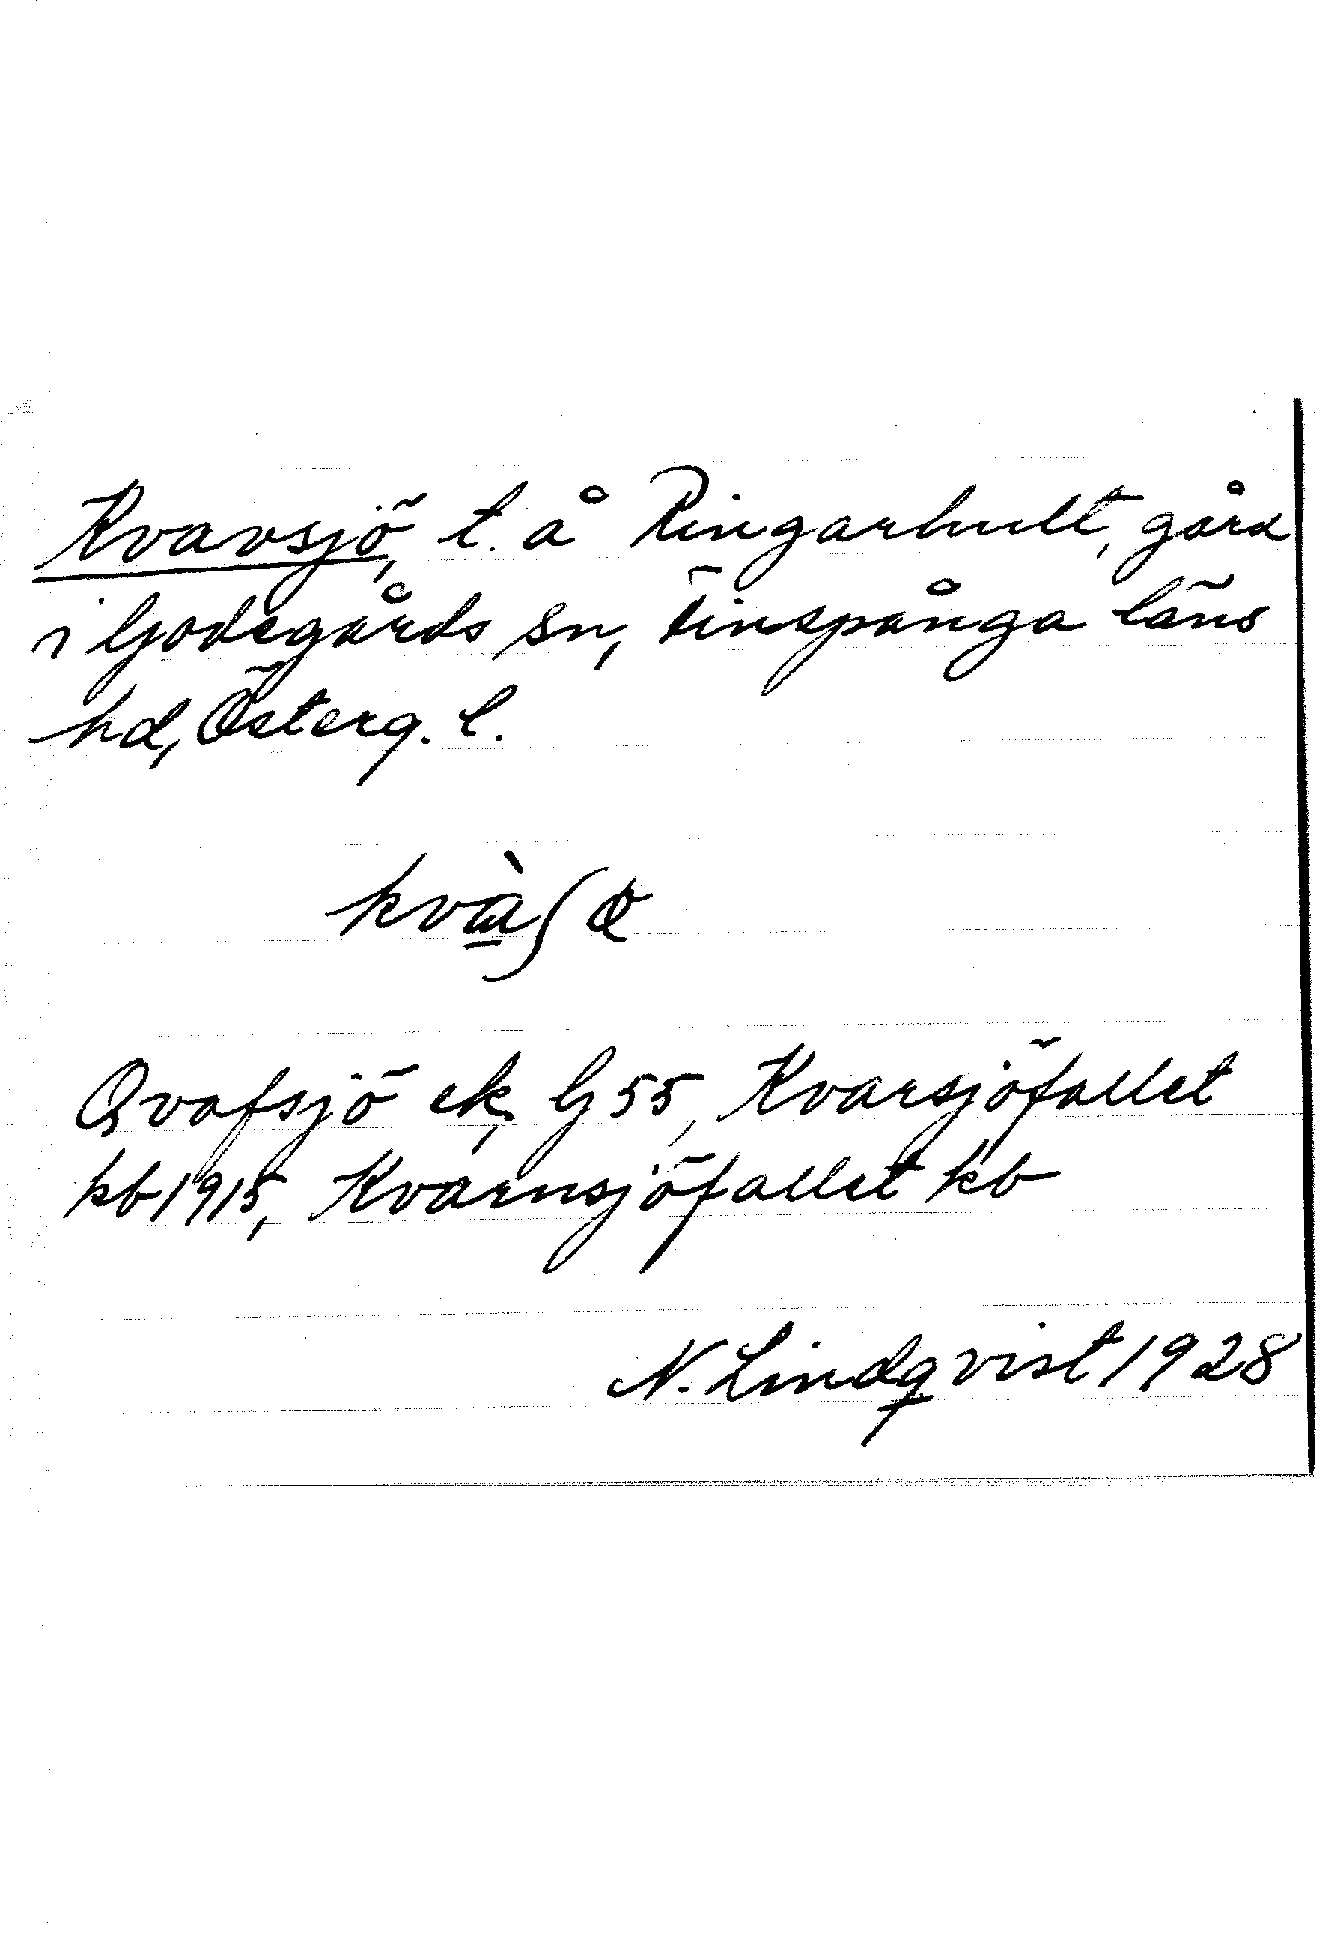 Kvavsjö, t. å Ringarhult, gård
i Godegårds sn, Finspånga läns
hd, Österg. l.
Qvafsjö ek, G 55, Kvarsjöfallet
kb 1915, Kvarnsjöfallet kb
N. Lindqvist 1928